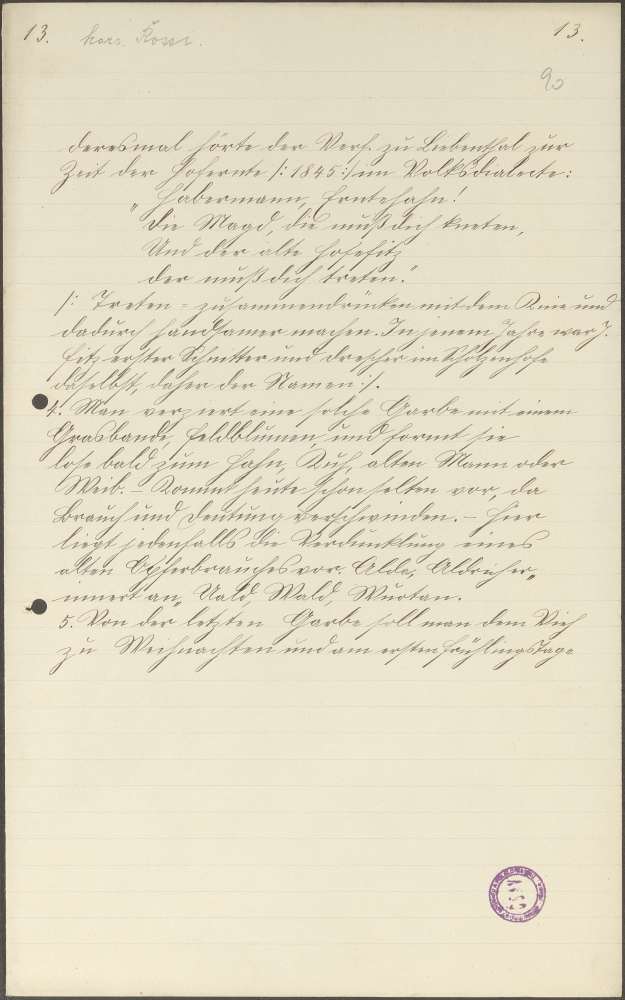 13. 13.
90
deresmal hörte der Verf. zu Liebenthal zur
Zeit der Hofernte /: 1845 :/ im Volksdialecte:
„Habermann, Erntehahn!
Die Magd, die muß dich kneten,
Und der alte Hofefitz
der muß dich treten.“
/: Treten = zusammendrücken mit dem Knie und
dadurch handsamer machen. In jenem Jahre war J.
Fitz erster Schnitter und Drescher im Scholzenhofe
daselbst, daher der Namen :/.
4. Man verziert eine solche Garbe mit einem
Grasbande, Feldblumen, und formt sie
lose bald zum Hahn, Kuh, alten Mann oder
Weib. – Kommt heute schon selten vor, da
Brauch und Deutung verschwinden. – Hier
liegt jedenfalls die Verdunklung eines
alten Opferbrauches vor. Alda, Aldricher„
innert an „Uald, Wald, Wuotan.
5. Von der letzten Garbe soll man dem Vieh
zu Weihnachten und am ersten Frühlingstage